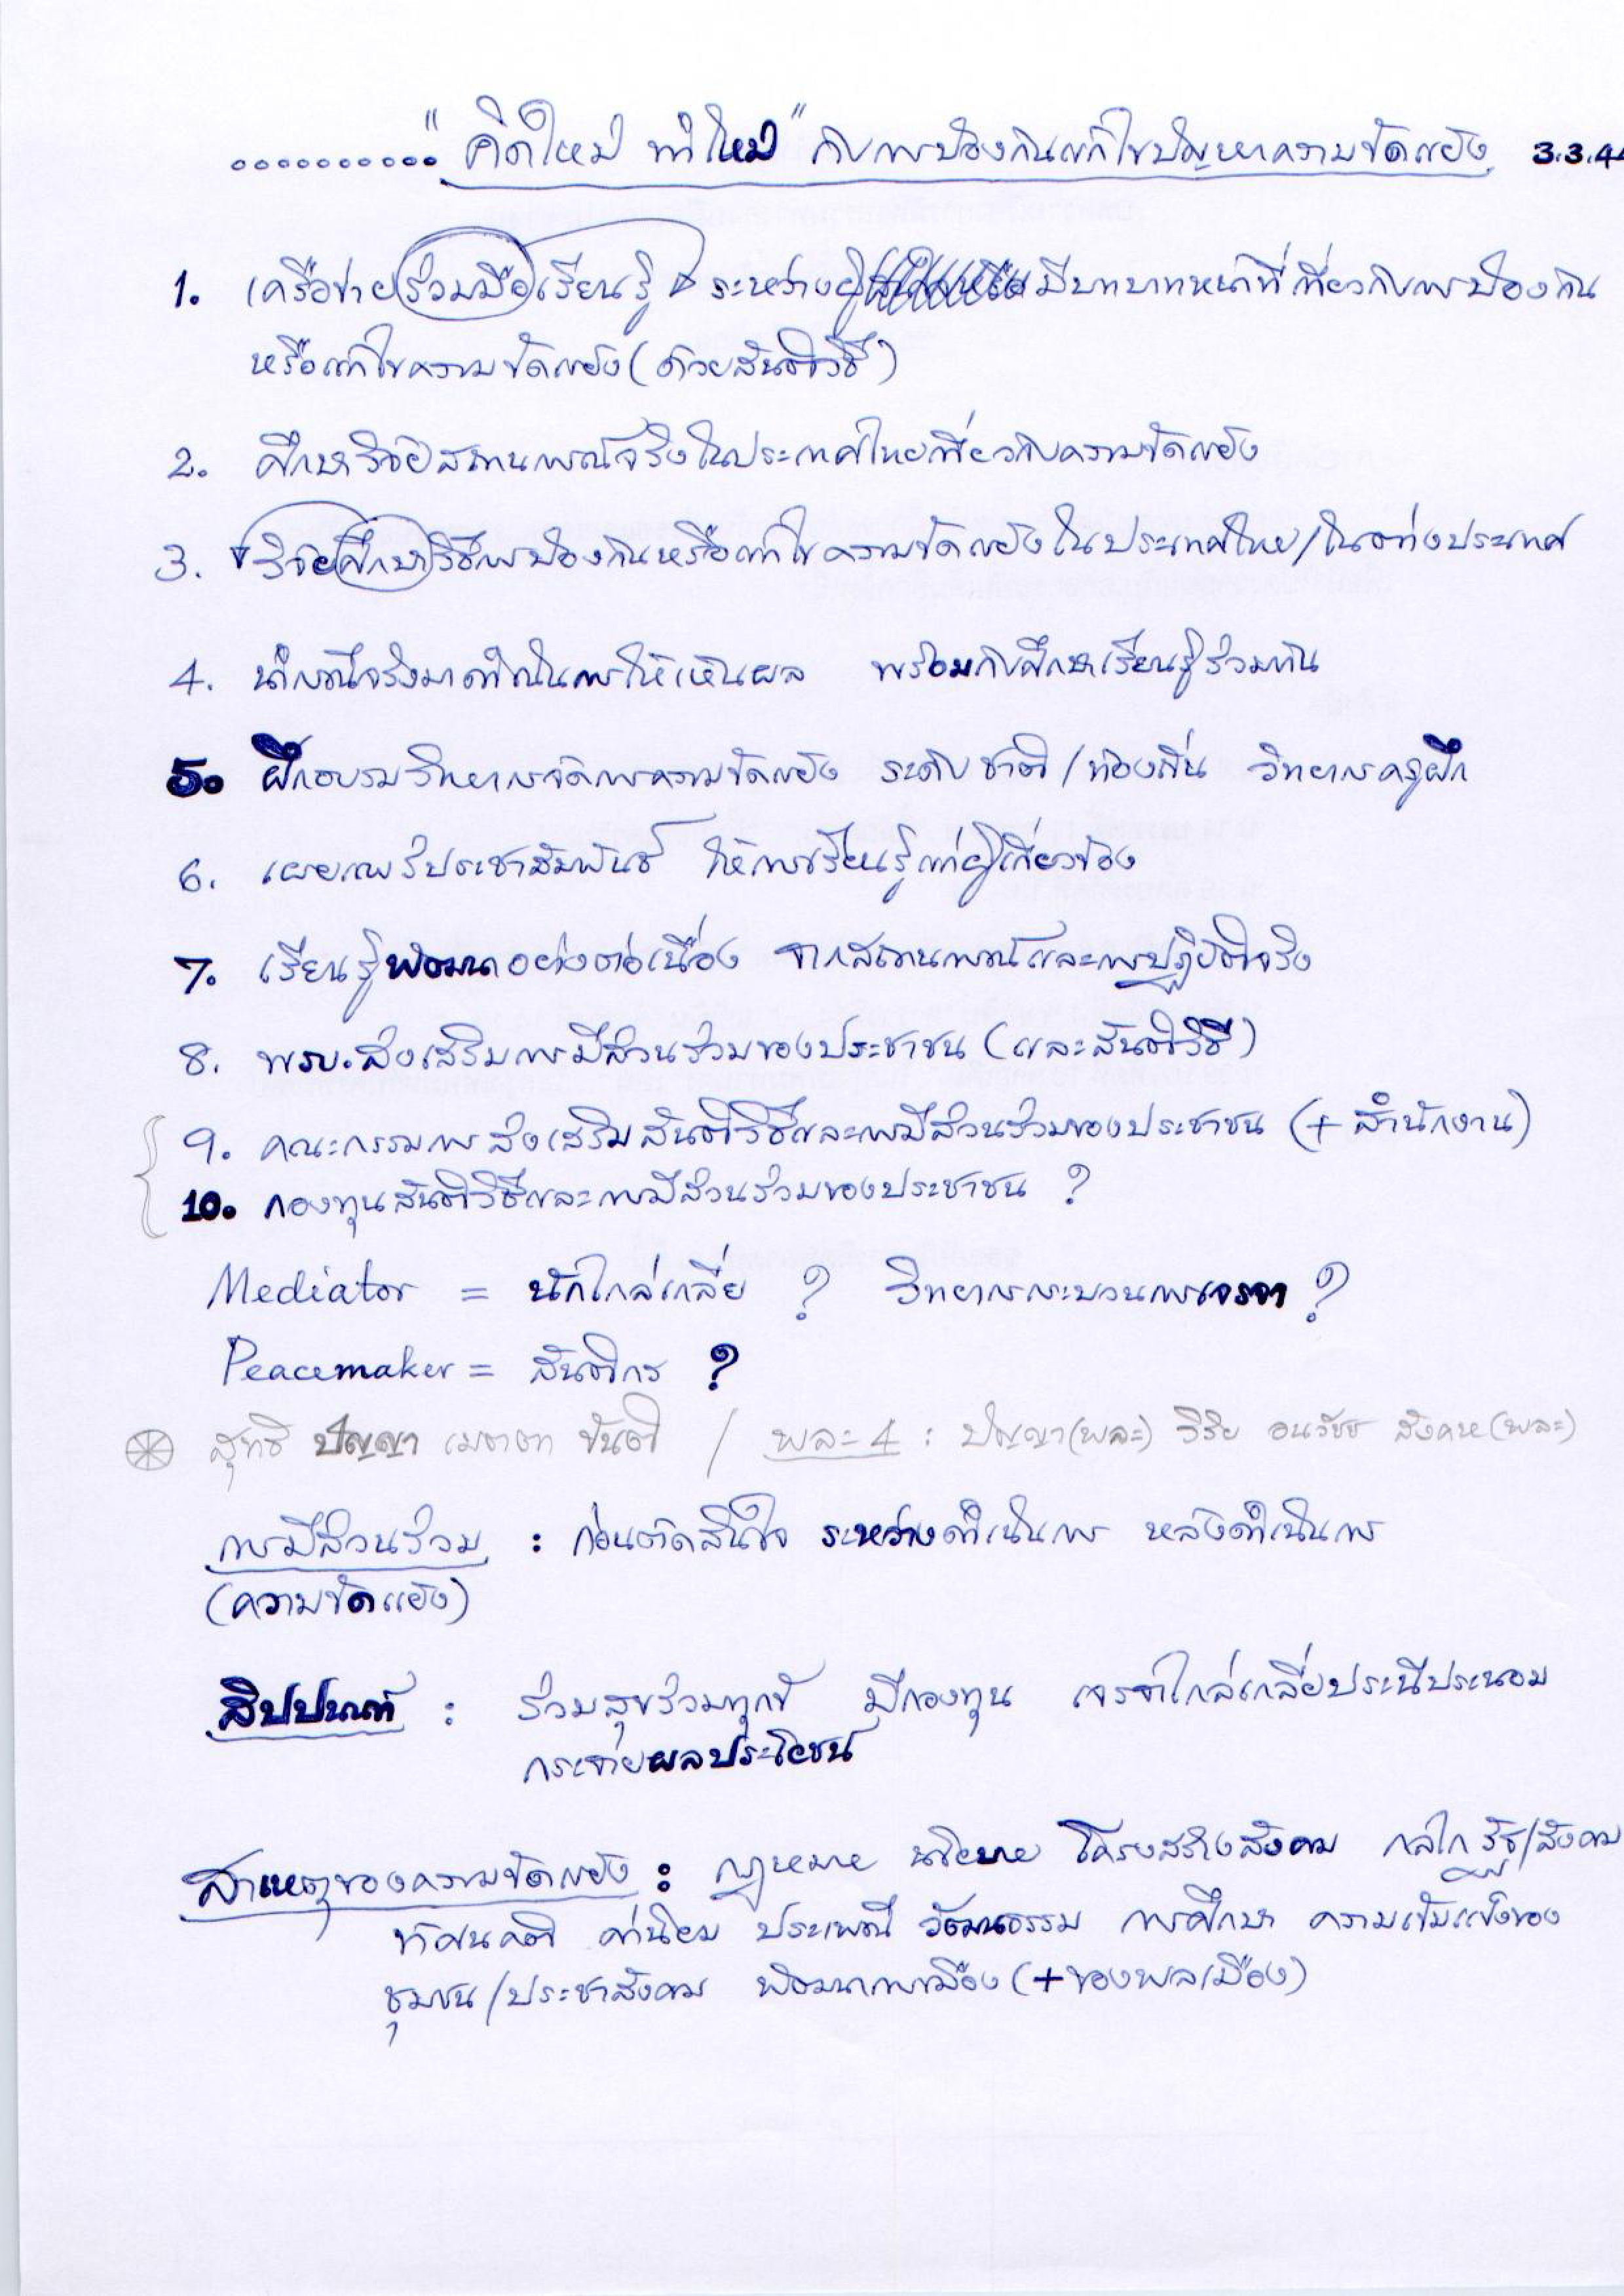 .......... "คิดใหม่ ทำใหม่" กับการป้องกันแก้ไขปัญหาความขัดแย้ง 3.3.44
1. เครือข่ายร่วมมือเรียนรู้ ระหว่างผู้มีบทบาทหน้าที่เกี่ยวกับการป้องกัน
หรือแก้ไขความขัดแย้ง (ด้วยสันติวิธี)
2. ศึกษาวิจัยสถานการณ์จริงในประเทศไทยเกี่ยวกับความขัดแย้ง
3. วิจัยศึกษาวิธีการป้องกันหรือแก้ไขความขัดแย้งในประเทศไทย/ในต่างประเทศ
4. นำกรณีจริงมาดำเนินการให้เห็นผล พร้อมกับศึกษาเรียนรู้ร่วมกัน
5. ฝึกอบรมวิทยากรจัดการความขัดแย้ง ระดับชาติ/ท้องถิ่น วิทยากรครูฝึก
6. เผยแพร่ประชาสัมพันธ์ ให้การเรียนรู้แก่ผู้เกี่ยวข้อง
7. เรียนรู้พัฒนาอย่างต่อเนื่อง จากสถานการณ์และการปฏิบัติจริง
8. พรบ.ส่งเสริมการมีส่วนร่วมของประชาชน (และสันติวิธี)
9. คณะกรรมการส่งเสริมสันติวิธีและการมีส่วนร่วมของประชาชน (+ สำนักงาน)
10. กองทุนสันติวิธีและการมีส่วนร่วมของประชาชน ?
Mediator = นักไกล่เกลี่ย ? วิทยากรกระบวนการเจรจา ?
Peacemaker = สันติกร ?
สุทธิ ปัญญา เมตตา ขันติ / พละ 4 : ปัญญา(พละ) วิริย อนวัชช สังคห(พละ)
การมีส่วนร่วม : ก่อนตัดสินใจ ระหว่างดำเนินการ หลังดำเนินการ
(ความขัดแย้ง)
สิปปนนท์ : ร่วมสุขร่วมทุกข์ มีกองทุน เจรจาไกล่เกลี่ยประนีประนอม
กระจายผลประโยชน์
สาเหตุของความขัดแย้ง : กฎหมาย นโยบาย โครงสร้างสังคม กลไกรัฐ/สังคม
ทัศนคติ ค่านิยม ประเพณี วัฒนธรรม การศึกษา ความเข้มแข็งของ
ชุมชน/ประชาสังคม พัฒนาการเมือง (+ของพลเมือง)